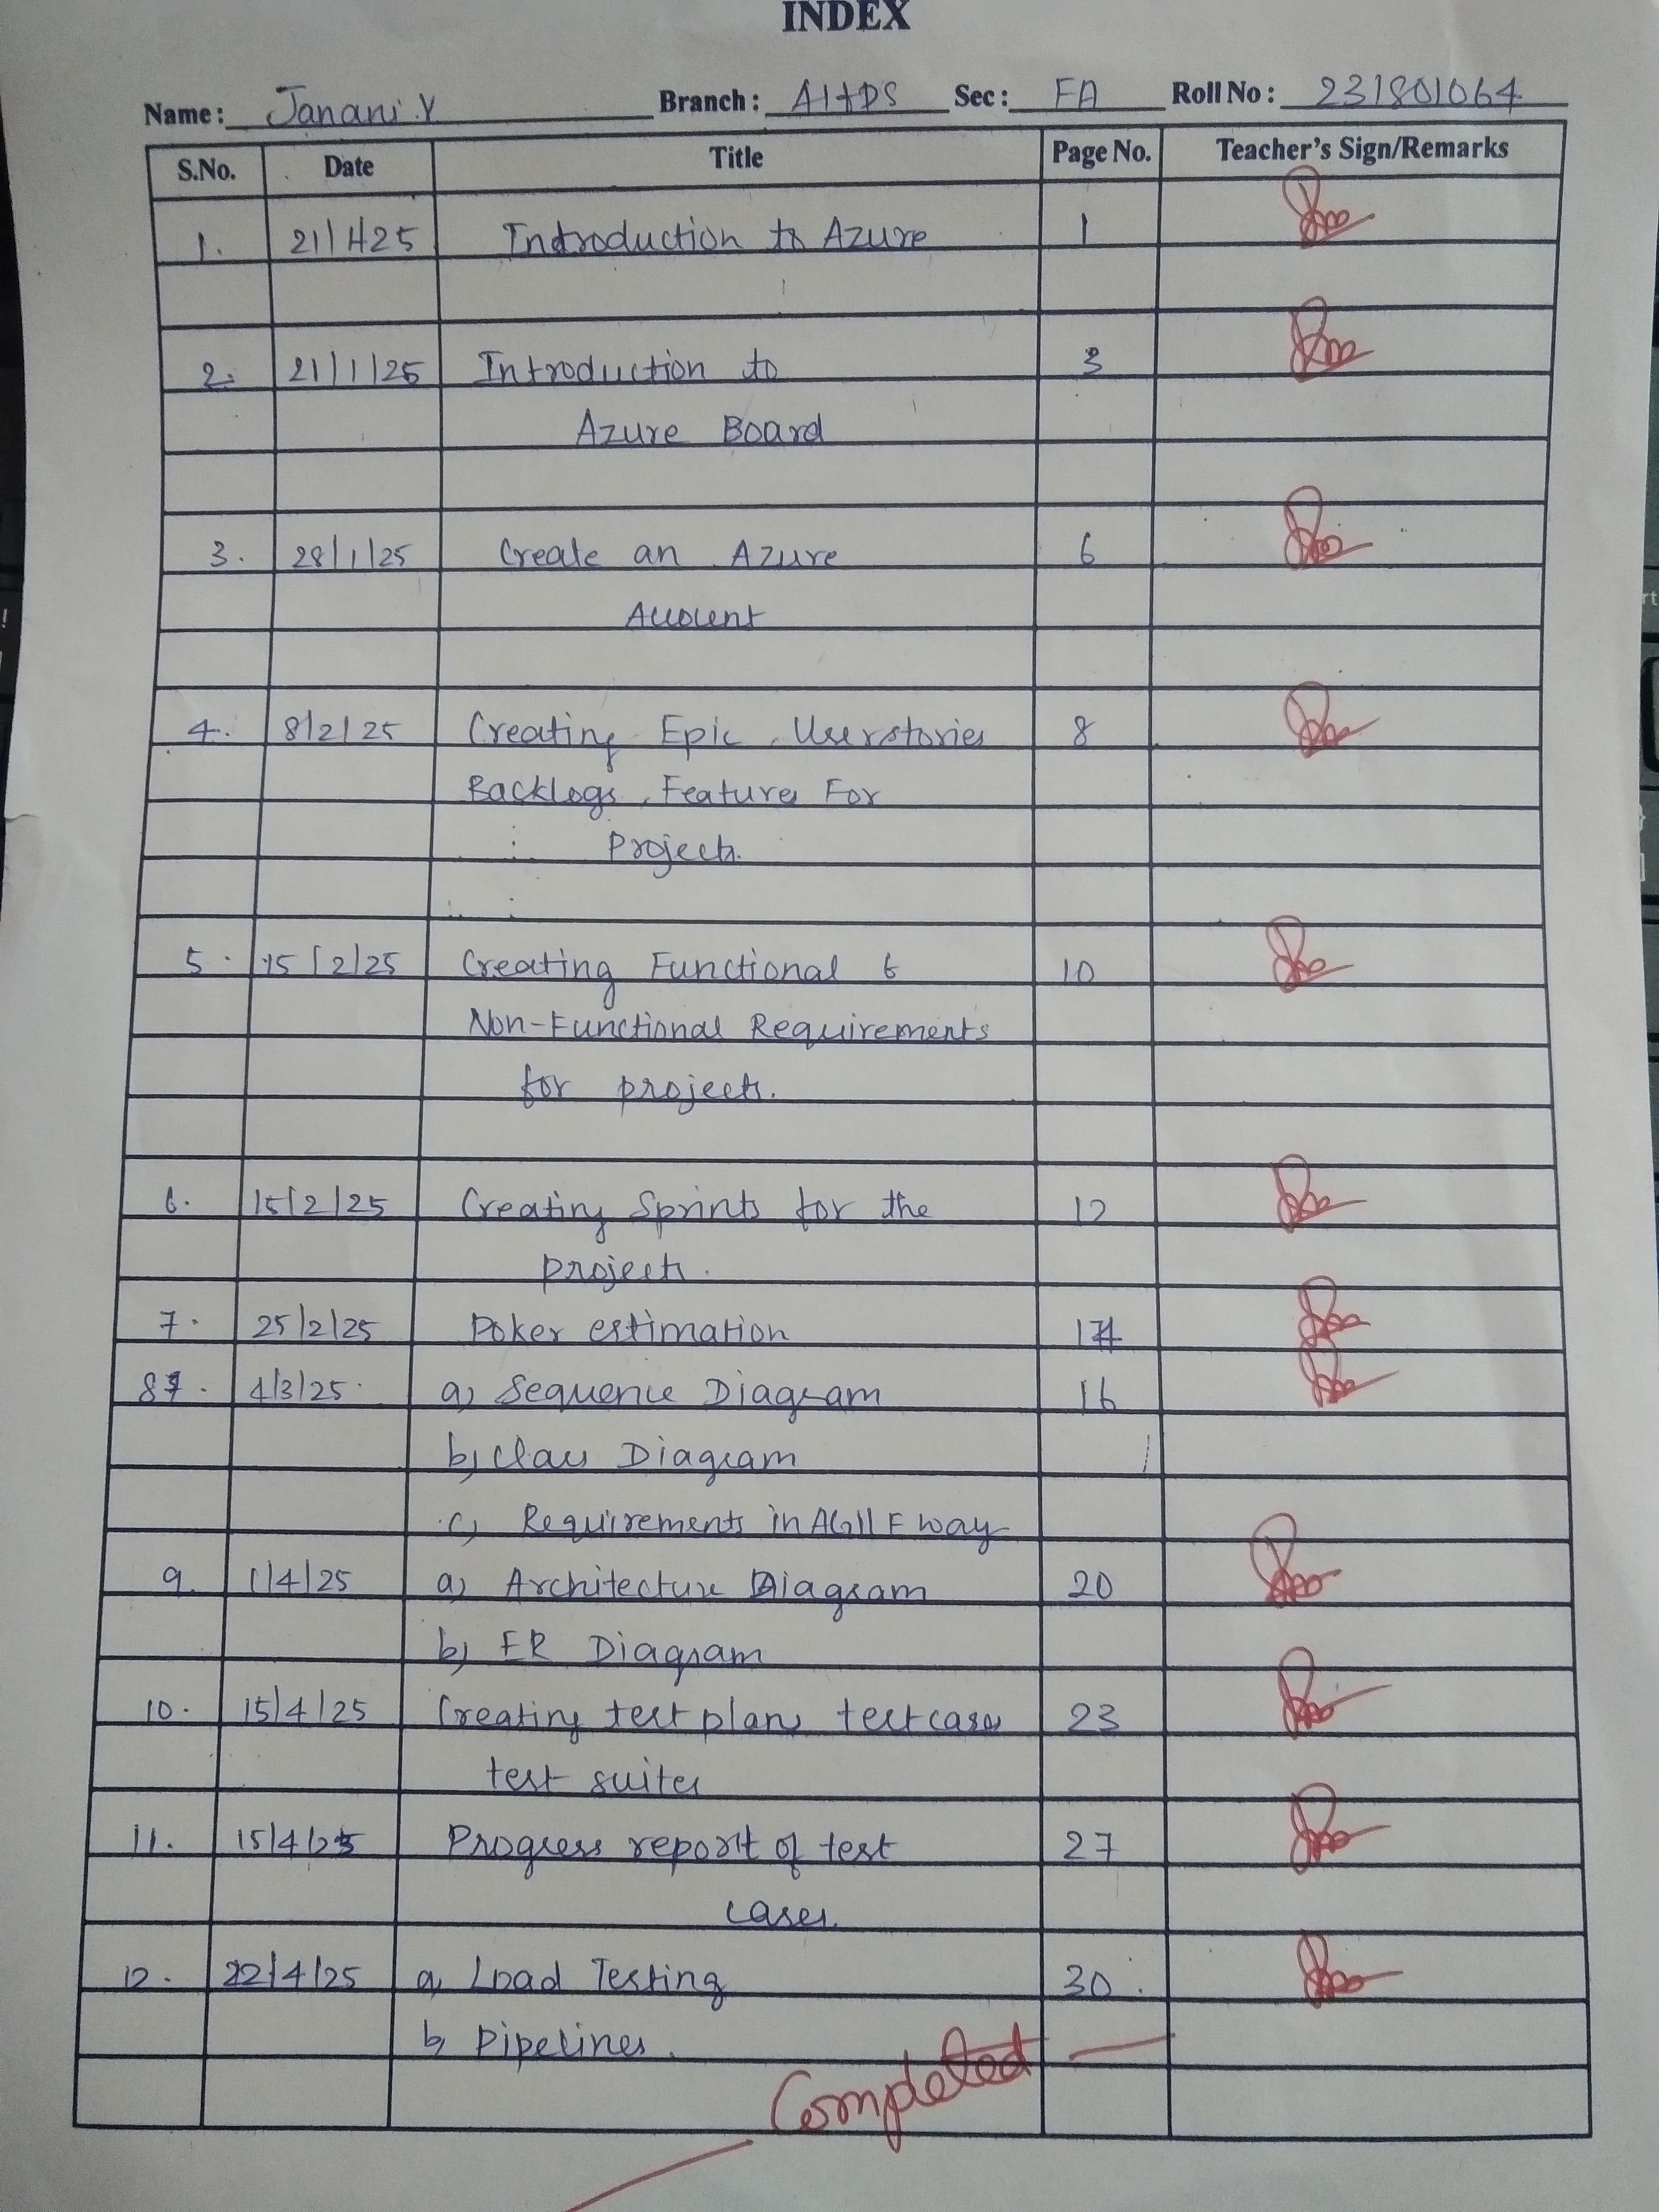 INDEX
Name: Janani.V Branch: AI+DS Sec: FA Roll No: 231801064
S.No. Date Title Page No. Teacher's Sign/Remarks
1. 21/1/25 Introduction to Azure 1
2. 21/1/25 Introduction to 3
Azure Board
3. 28/1/25 Create an Azure 6
Account
4. 8/2/25 Creating Epic, Userstories 8
Backlogs, Features For
Projects.
5. 15/2/25 Creating Functional & 10
Non-Functional Requirements
for projects.
6. 15/2/25 Creating Sprints for the 12
projects.
7. 25/2/25 Poker estimation 14
8. 4/3/25 a) Sequence Diagram 16
b) Class Diagram
c) Requirements in AGILE way
9. 1/4/25 a) Architecture Diagram 20
b) ER Diagram
10. 15/4/25 Creating test plans testcases 23
test suites
11. 15/4/25 Progress report of test 27
cases.
12. 22/4/25 a) Load Testing 30
b) Pipelines.
Completed